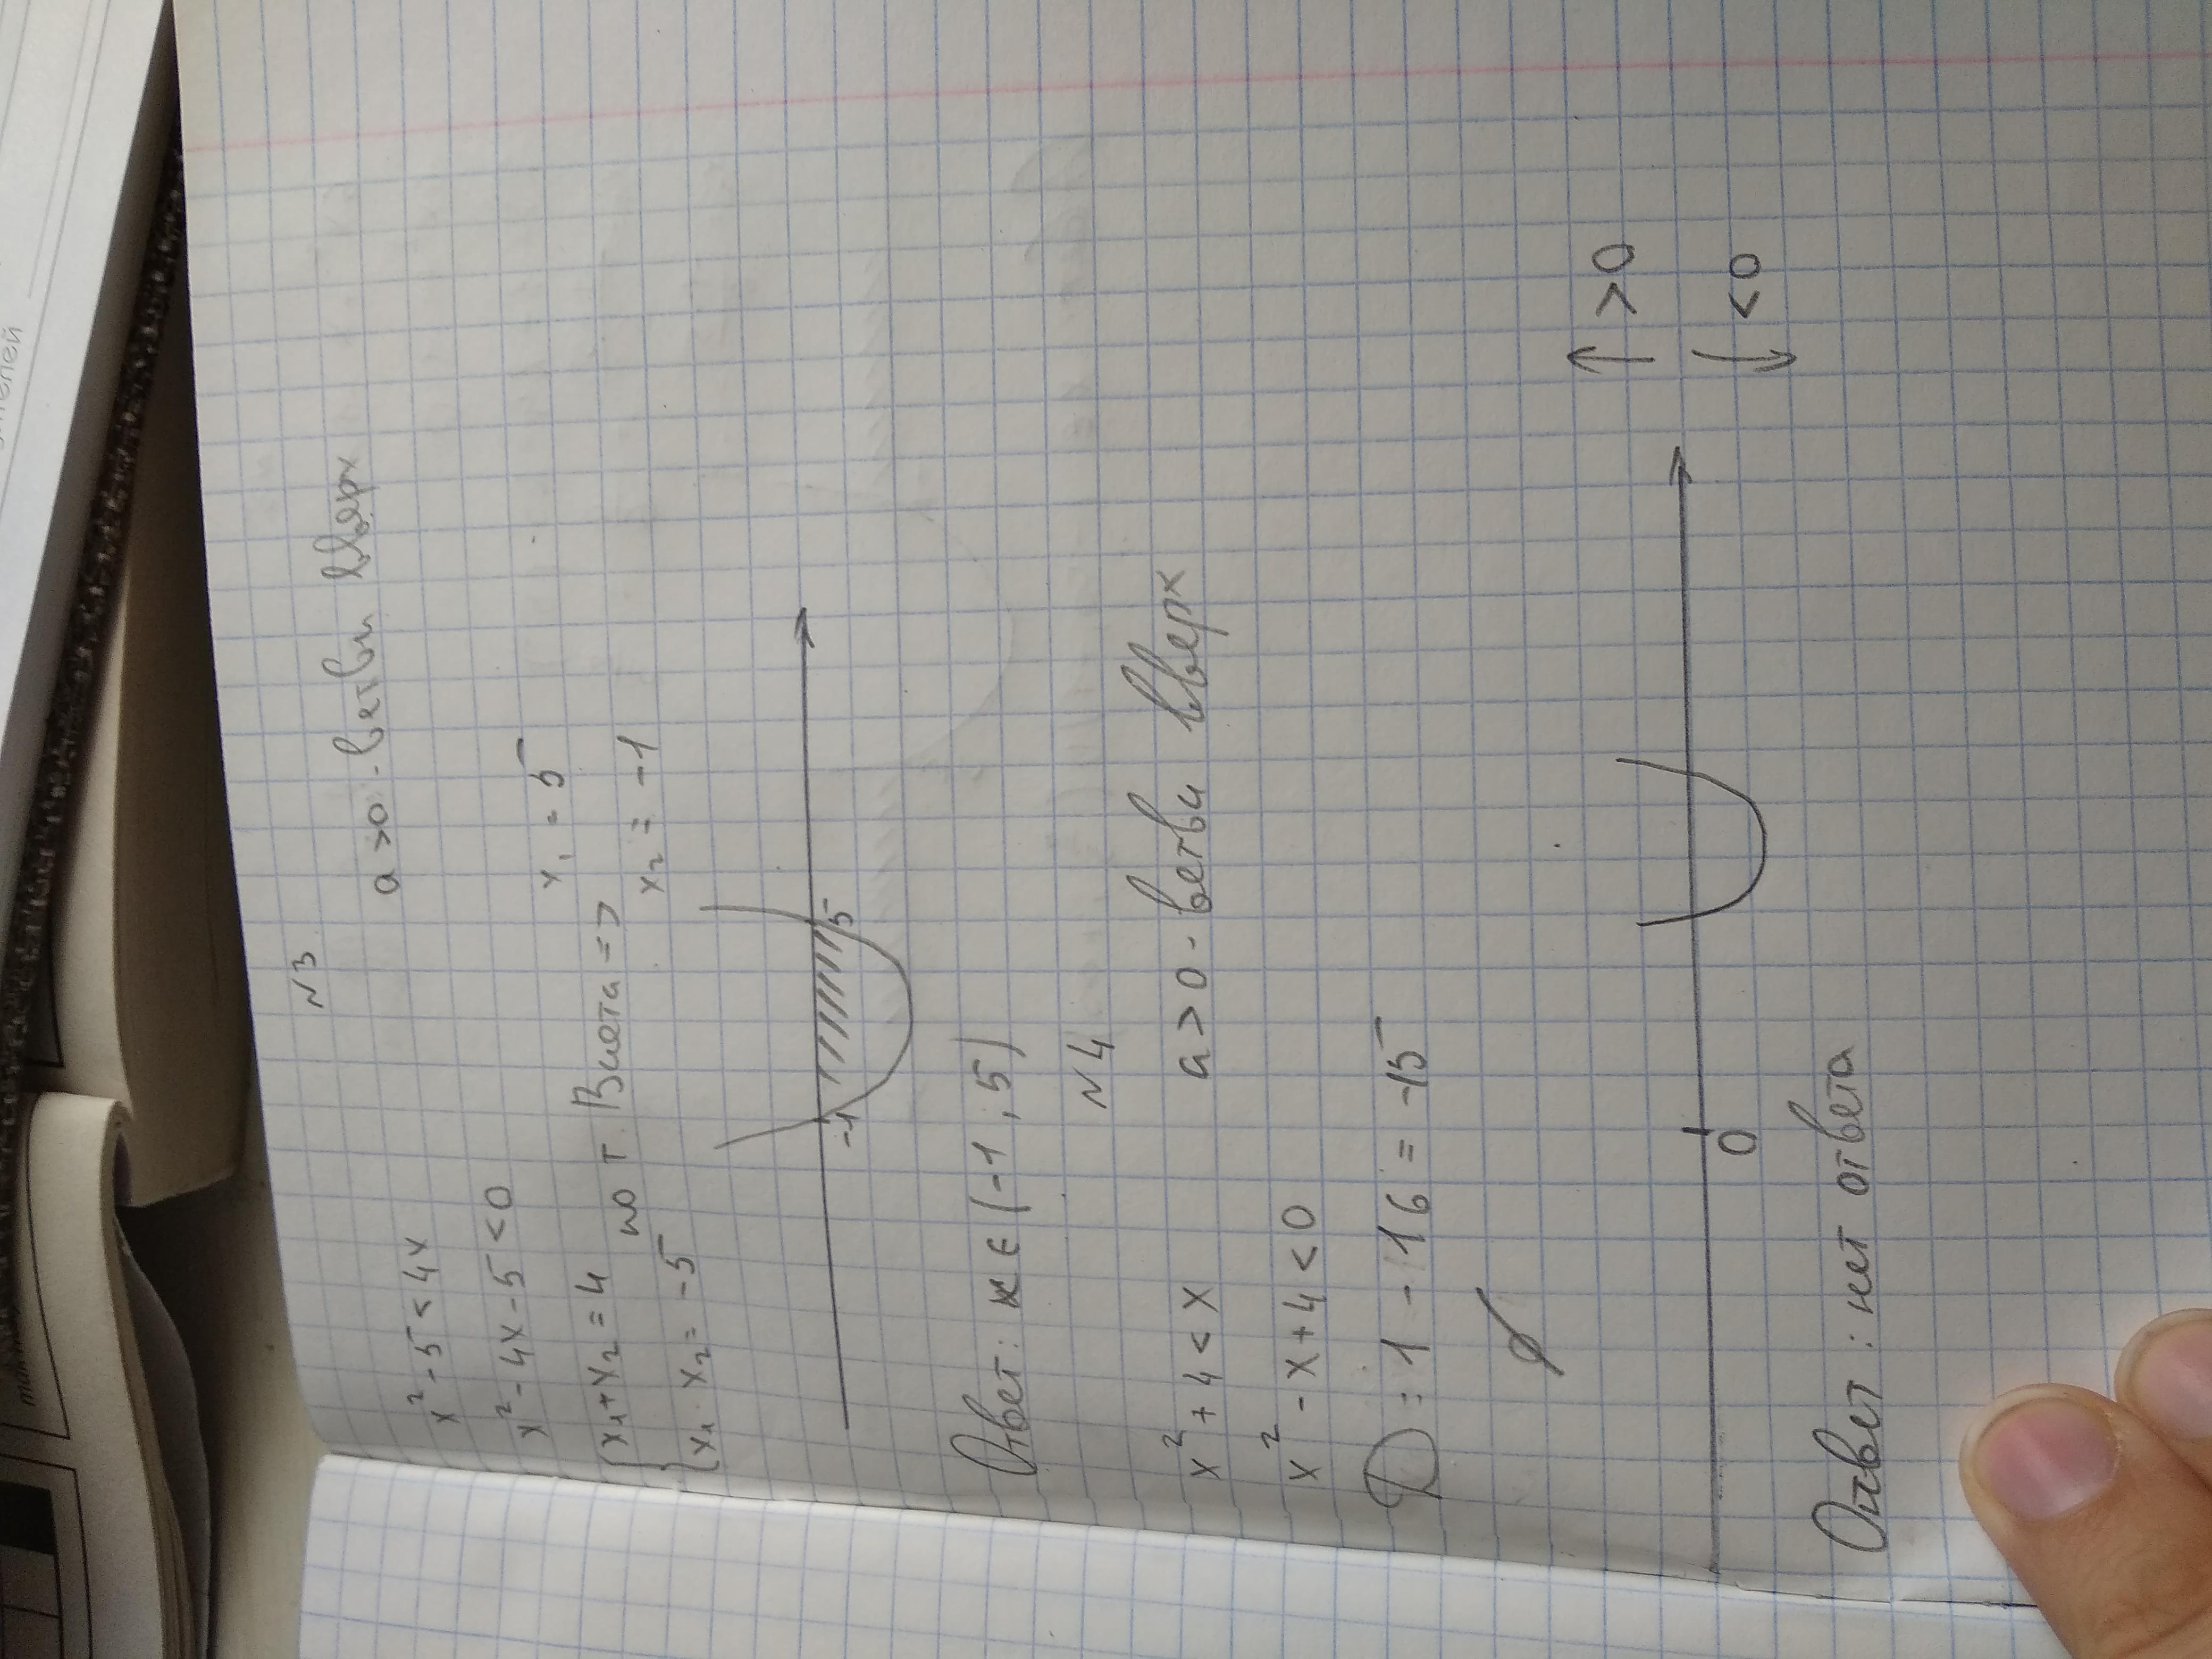 N3
x² - 5 < 4x a > 0 - ветви вверх
x² - 4x - 5 < 0
{x₁ + x₂ = 4 по т. Виета => x₁ = 5
{x₁ · x₂ = -5 x₂ = -1
-1 5
Ответ: x ∈ (-1; 5)
N4
x² + 4 < x a > 0 - ветви вверх
x² - x + 4 < 0
D: 1 - 16 = -15
∅
↑ > 0
0 ↓ < 0
Ответ: нет ответа